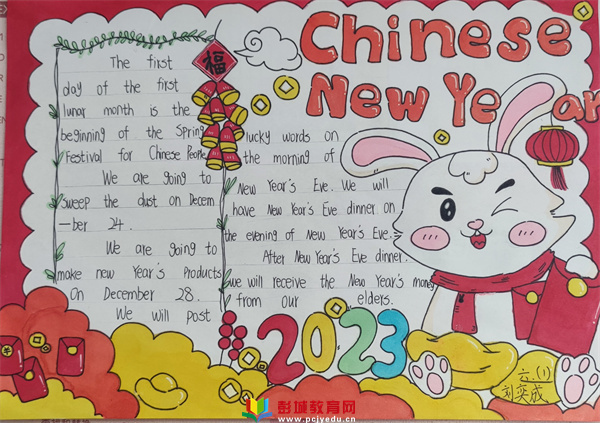 Chinese
New Year
福
The first
day of the first
lunar month is the
beginning of the Spring
Festival for Chinese People
We are going to
sweep the dust on Decem
-ber 24.
We are going to
make new Year's products
On December 28.
We will post
lucky words on
the morning of
New Year's Eve. We will
have New Year's Eve dinner on
the evening of New Year's Eve.
After New Year's Eve dinner.
we will receive the New Year's money
from our elders.
2023
六.(1)
刘奕成
彭城教育网
www.pcjyedu.cn